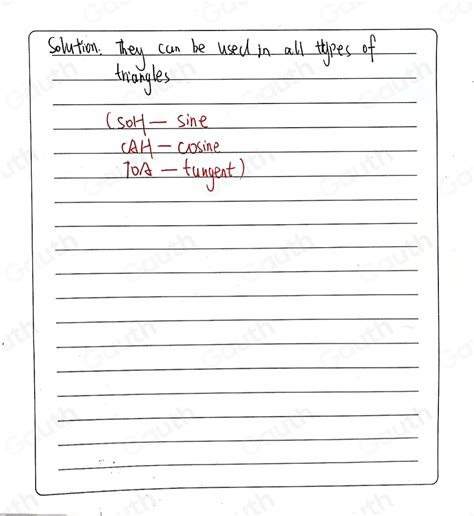 Solution: They can be used in all types of
triangles
(SOH — sine
CAH — cosine
TOA — tangent)